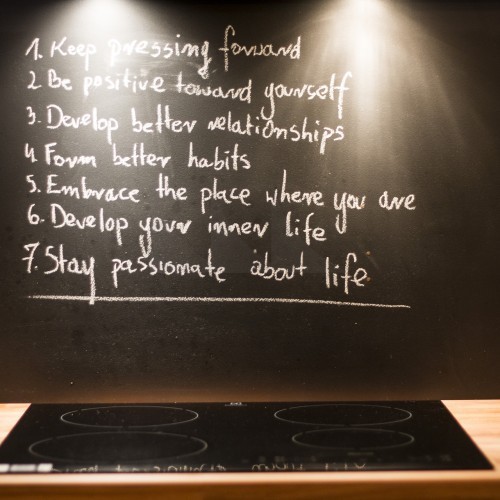 1. Keep pressing forward
2. Be positive toward yourself
3. Develop better relationships
4. Form better habits
5. Embrace the place where you are
6. Develop your inner life
7. Stay passionate about life